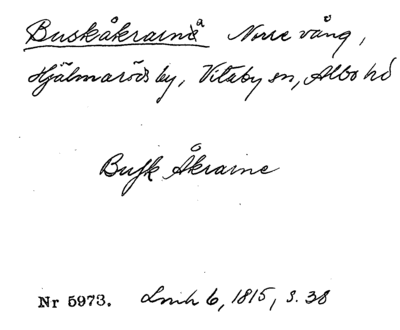 Buskåkrarna Norre vång,
Hjälmaröds by, Vitaby sn, Albo hd
Busk Åkrarne
Nr 5973. Lmh 6, 1815, s. 38